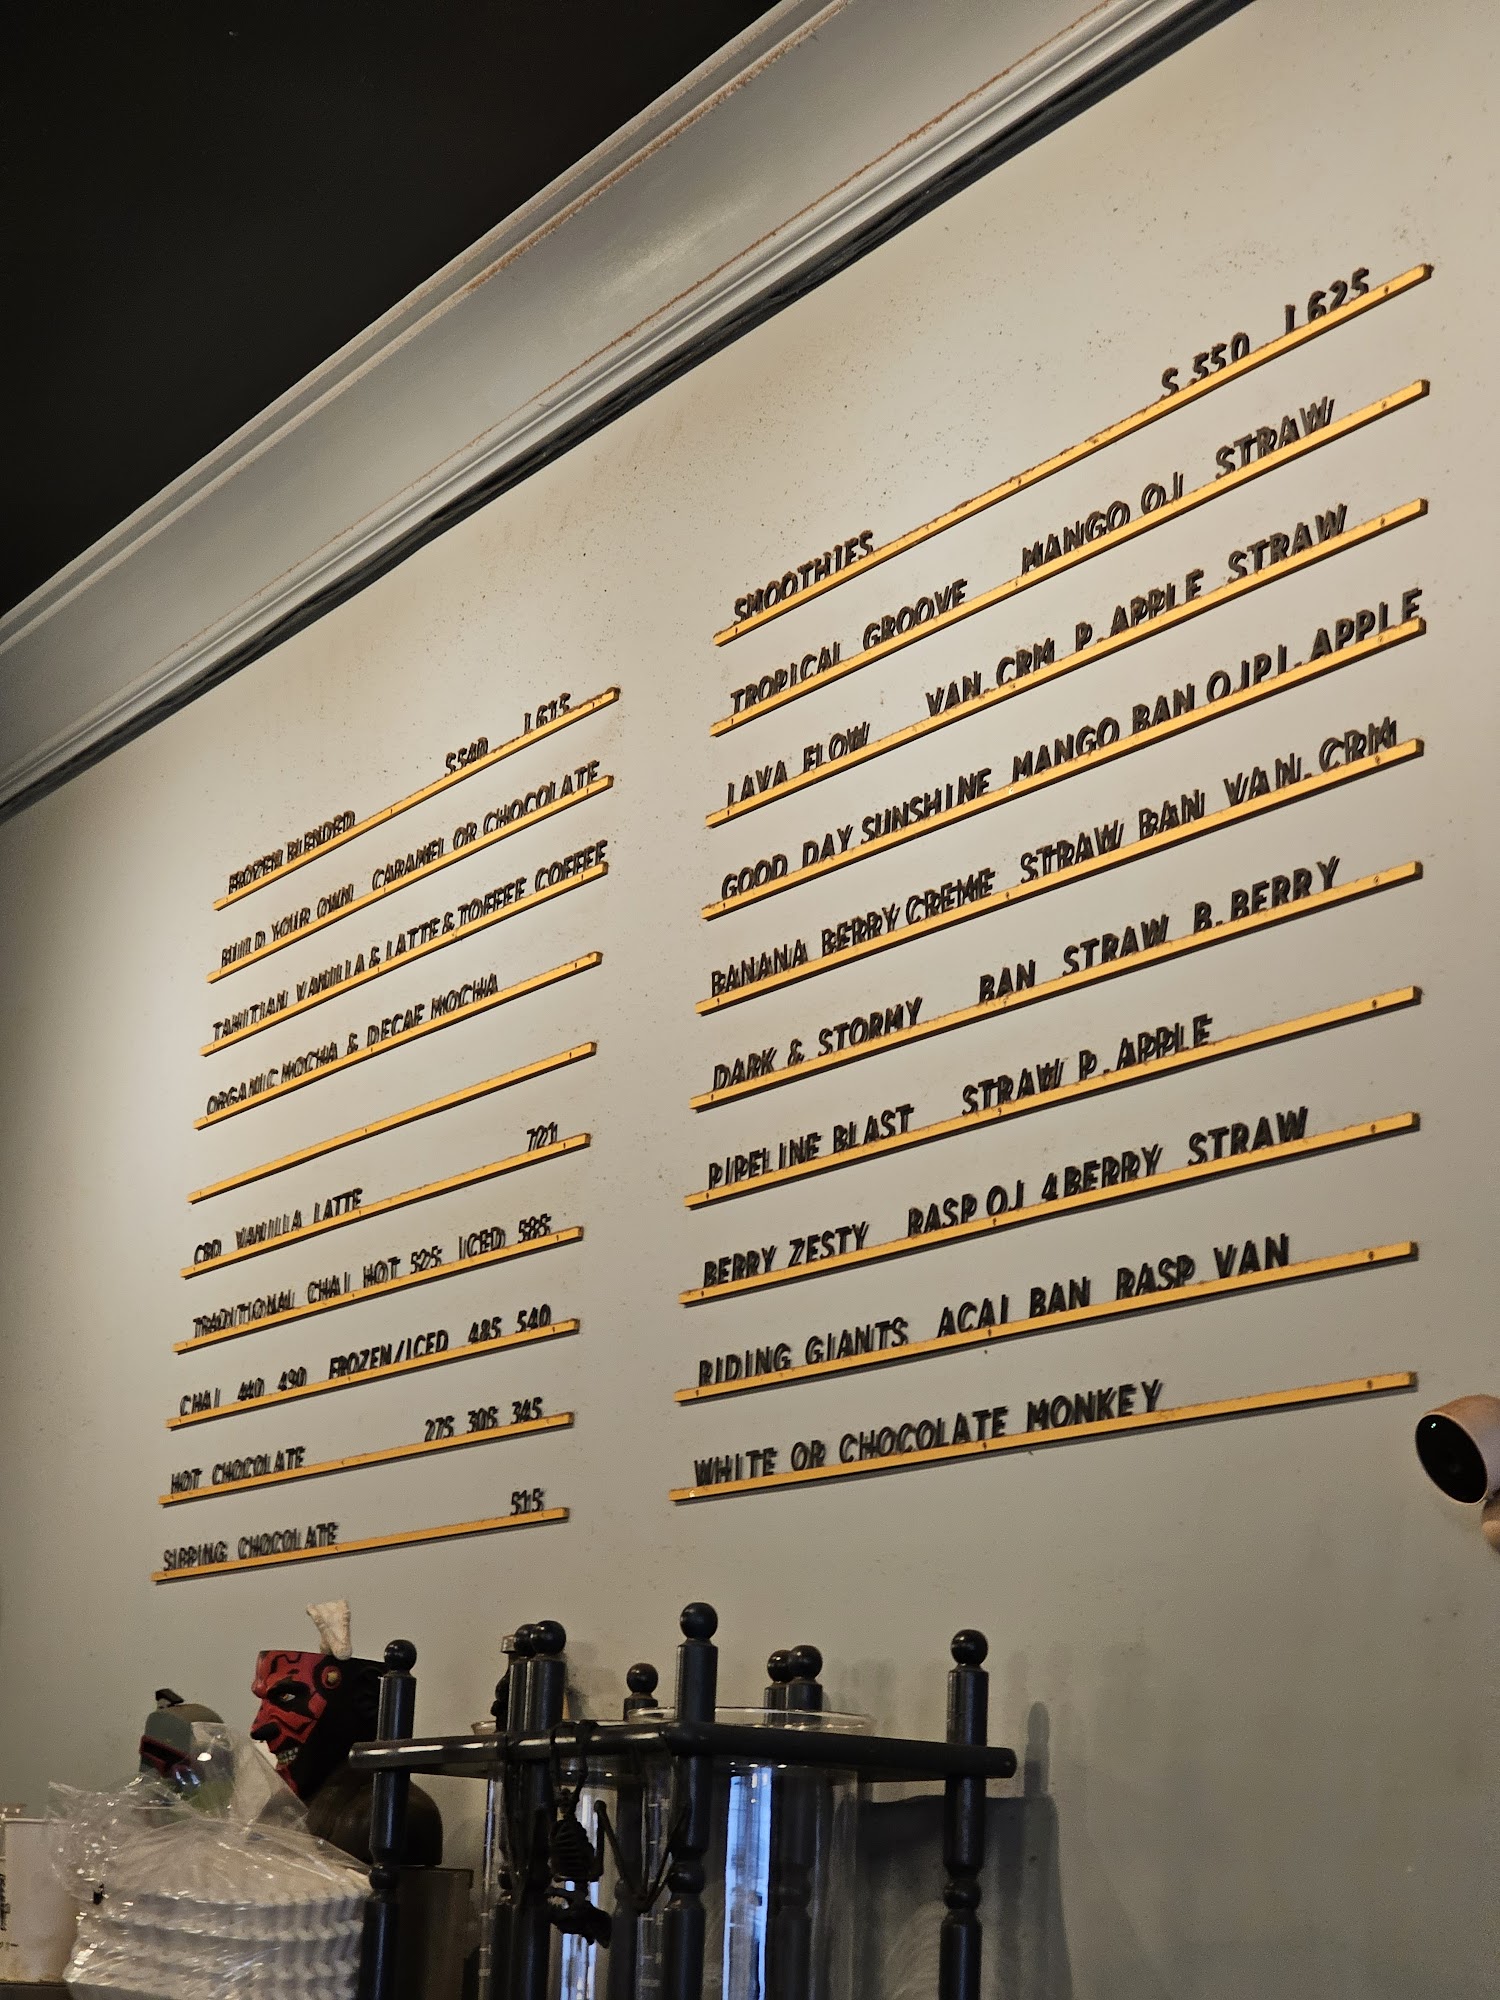 FROZEN BLENDED S540 L615
BUILD YOUR OWN CARAMEL OR CHOCOLATE
TAHITIAN VANILLA & LATTE & TOFFEE COFFEE
ORGANIC MOCHA & DECAF MOCHA
CBD VANILLA LATTE 701
TRADITIONAL CHAI HOT 525 ICED 585
CHAI 440 490 FROZEN/ICED 485 540
HOT CHOCOLATE 275 305 345
SIPPING CHOCOLATE 515
SMOOTHIES S.550 L625
TROPICAL GROOVE MANGO OJ STRAW
LAVA FLOW VAN.CRM P.APPLE STRAW
GOOD DAY SUNSHINE MANGO BAN OJPI.APPLE
BANANA BERRY CREME STRAW BAN VAN.CRM
DARK & STORMY BAN STRAW B.BERRY
PIPELINE BLAST STRAW P.APPLE
BERRY ZESTY RASP OJ 4BERRY STRAW
RIDING GIANTS ACAI BAN RASP VAN
WHITE OR CHOCOLATE MONKEY